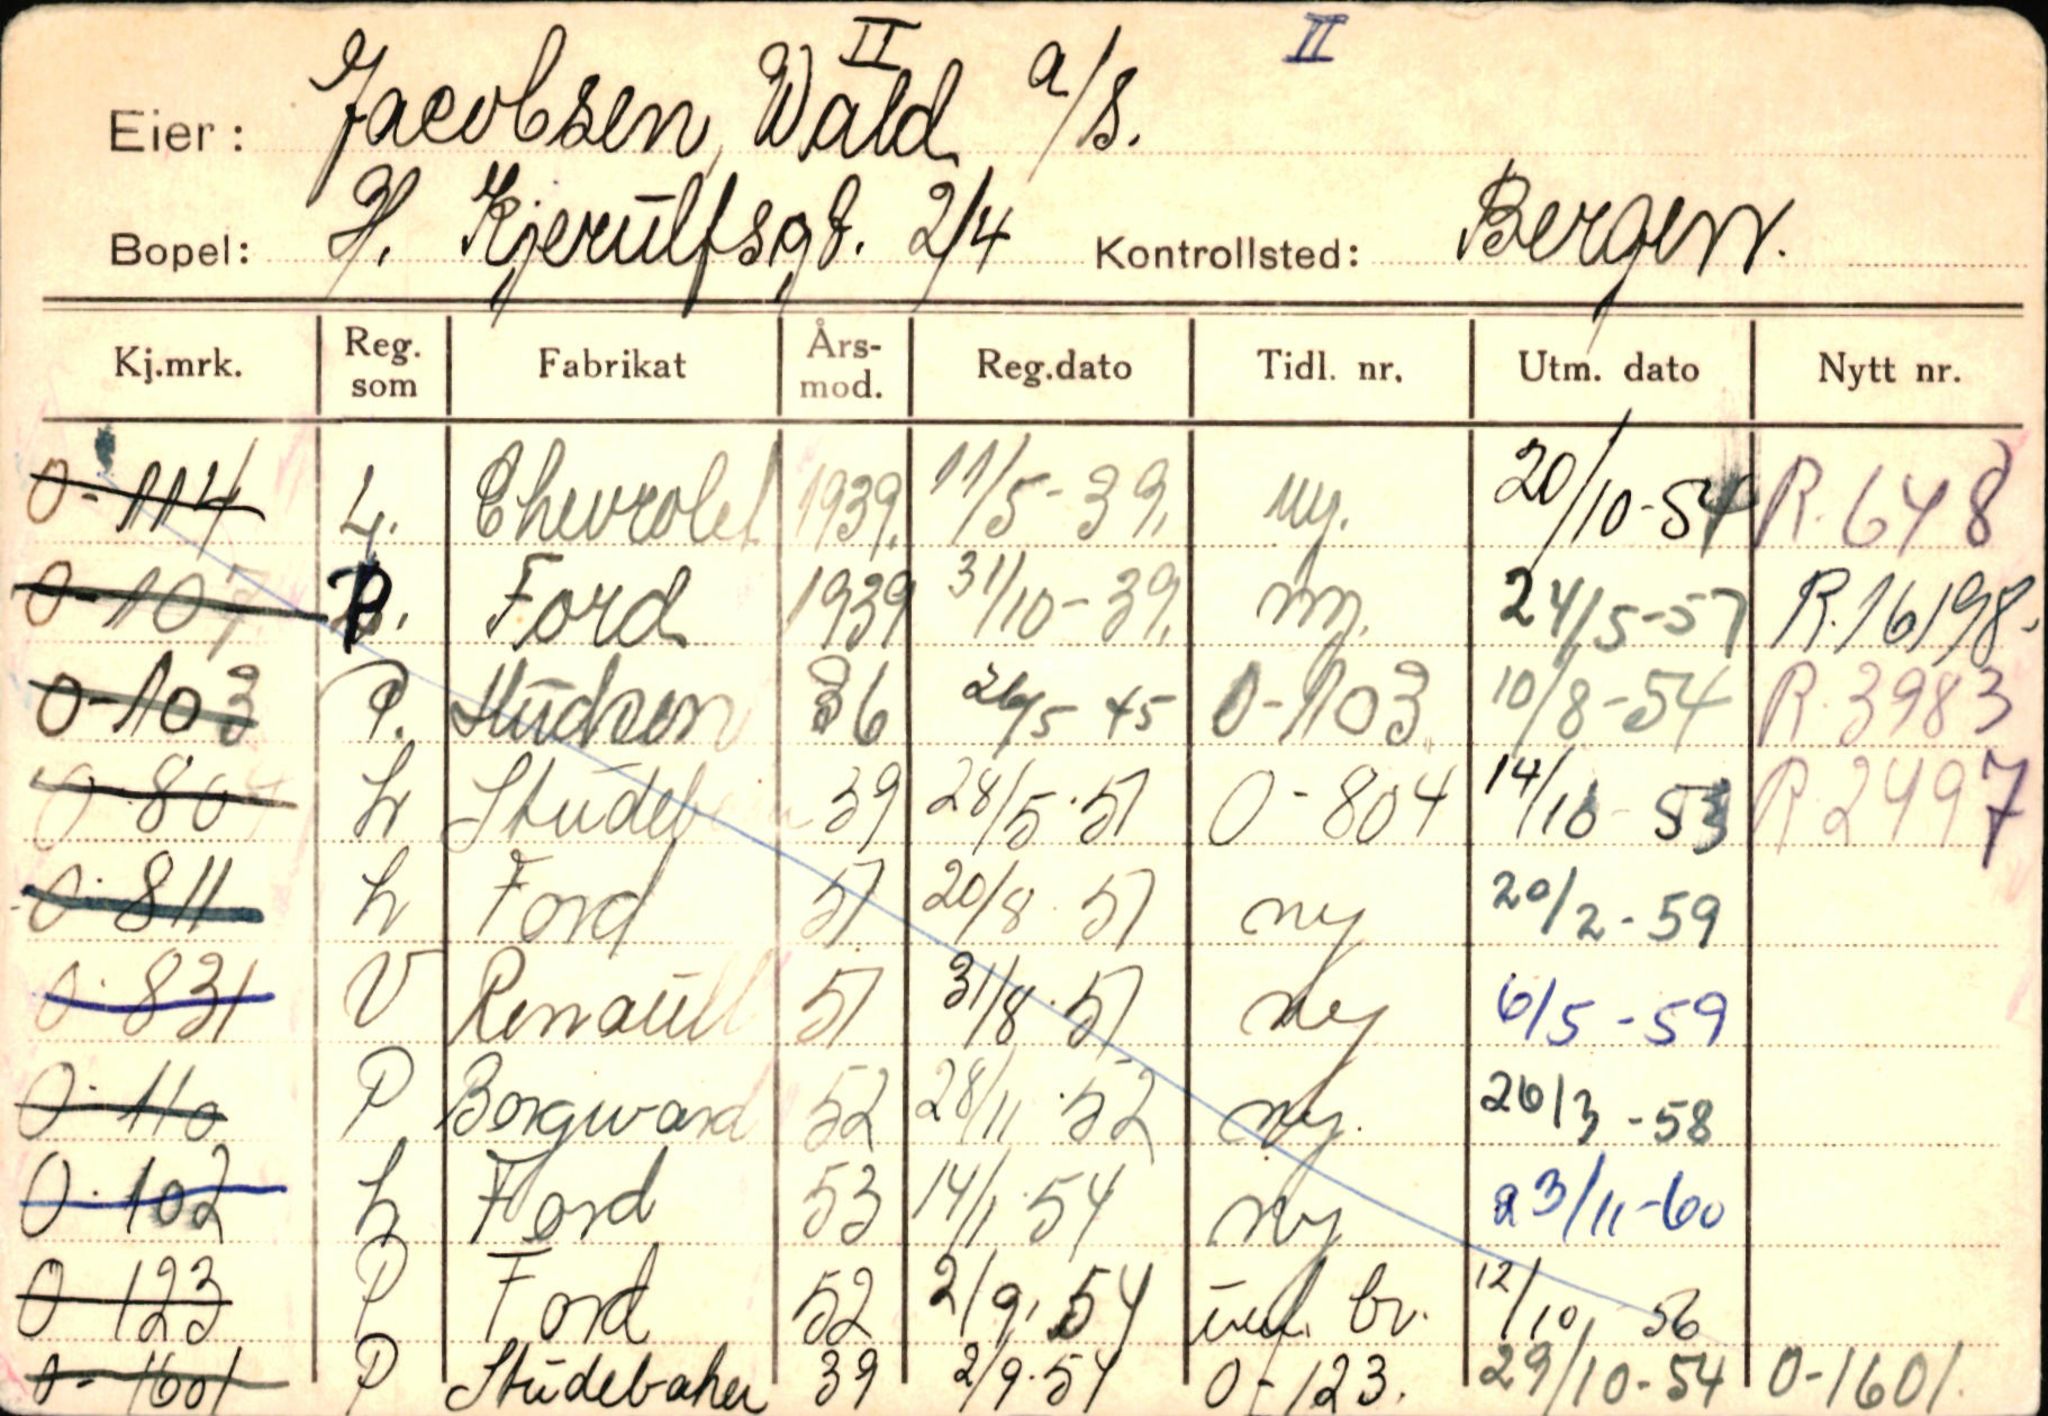 II II
Eier: Jacobsen, Wald a/s.
Bopel: H. Kjerulfsgt. 2/4 Kontrollsted: Bergen.
Kj.mrk. Reg. som Fabrikat Års-mod. Reg.dato Tidl. nr. Utm. dato Nytt nr.
O-114 L. Chevrolet 1939. 11/5-39. ny. 20/10-54 R.648
O-107 P. Ford 1939 31/10-39. ny. 24/5-57 R.16198.
O-103 P. Hudson 36 26/5 45 O-1103. 10/8-54 R.3983
O-804 L Studeb 39 28/5.51 O-804 14/10-53 R.2497
O.811 L Ford 51 20/8.51 ny 20/2-59
O.831 V Renault 51 31/8.51 ny 6/5-59
O.110 P Borgward 52 28/11.52 ny. 26/3-58
O.102 L Ford 53 14/1.54 ny 23/11-60
O-123 P Ford 52 2/9.54 br. 12/10 56
O-1601 P Studebaker 39 2/9.54 O-123. 29/10-54 O-1601.